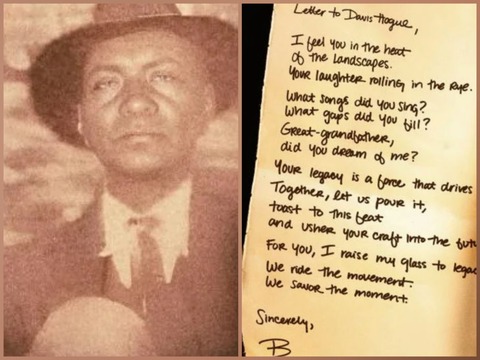 Letter to Davis Hogue,
I feel you in the heat
of the landscapes.
Your laughter rolling in the Rye.
What songs did you sing?
What gaps did you fill?
Great-grandfather,
did you dream of me?
Your legacy is a force that drives
Together, let us pour it,
toast to this feat
and usher your craft into the
For you, I raise my glass to
We ride the movement.
We savor the moment.
Sincerely,
B